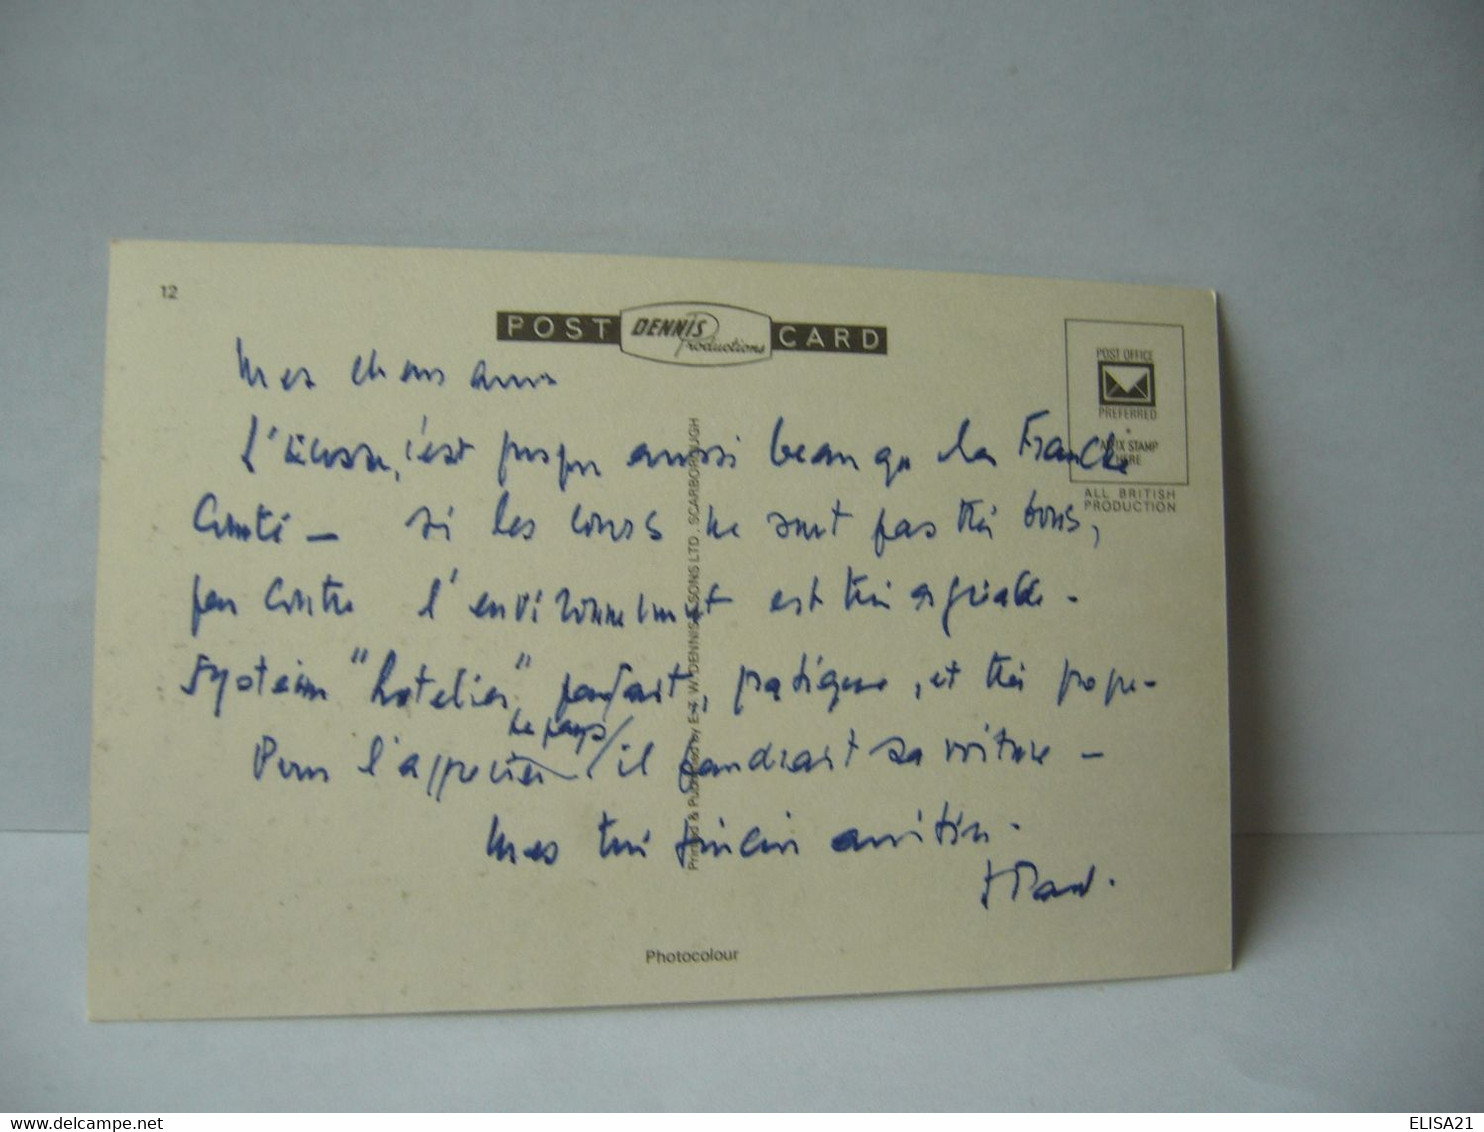 12
POST DENNIS Productions CARD
POST OFFICE
PREFERRED
AFFIX STAMP
HERE
ALL BRITISH
PRODUCTION
Mes chers amis
l'Ecosse, c'est presque aussi beau que la Franche
Comté - si les cours ne sont pas très bons,
par contre l'environnement est très agréable.
système "hotelier" parfait, pratique, et très propre.
Pour l'apprécier le pays il faudrait sa voiture -
Mes très sincères amitiés.
Printed & Published by E. T. W. DENNIS & SONS LTD., SCARBOROUGH
Photocolour
ELISA21